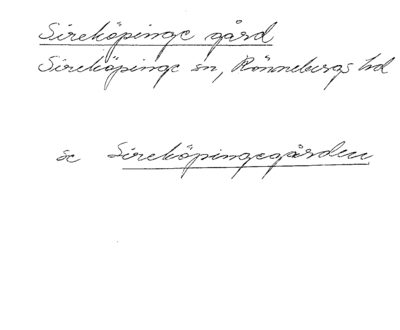 Sireköpinge gård
Sireköpinge sn, Rönnebergs hd
se Sireköpingegården